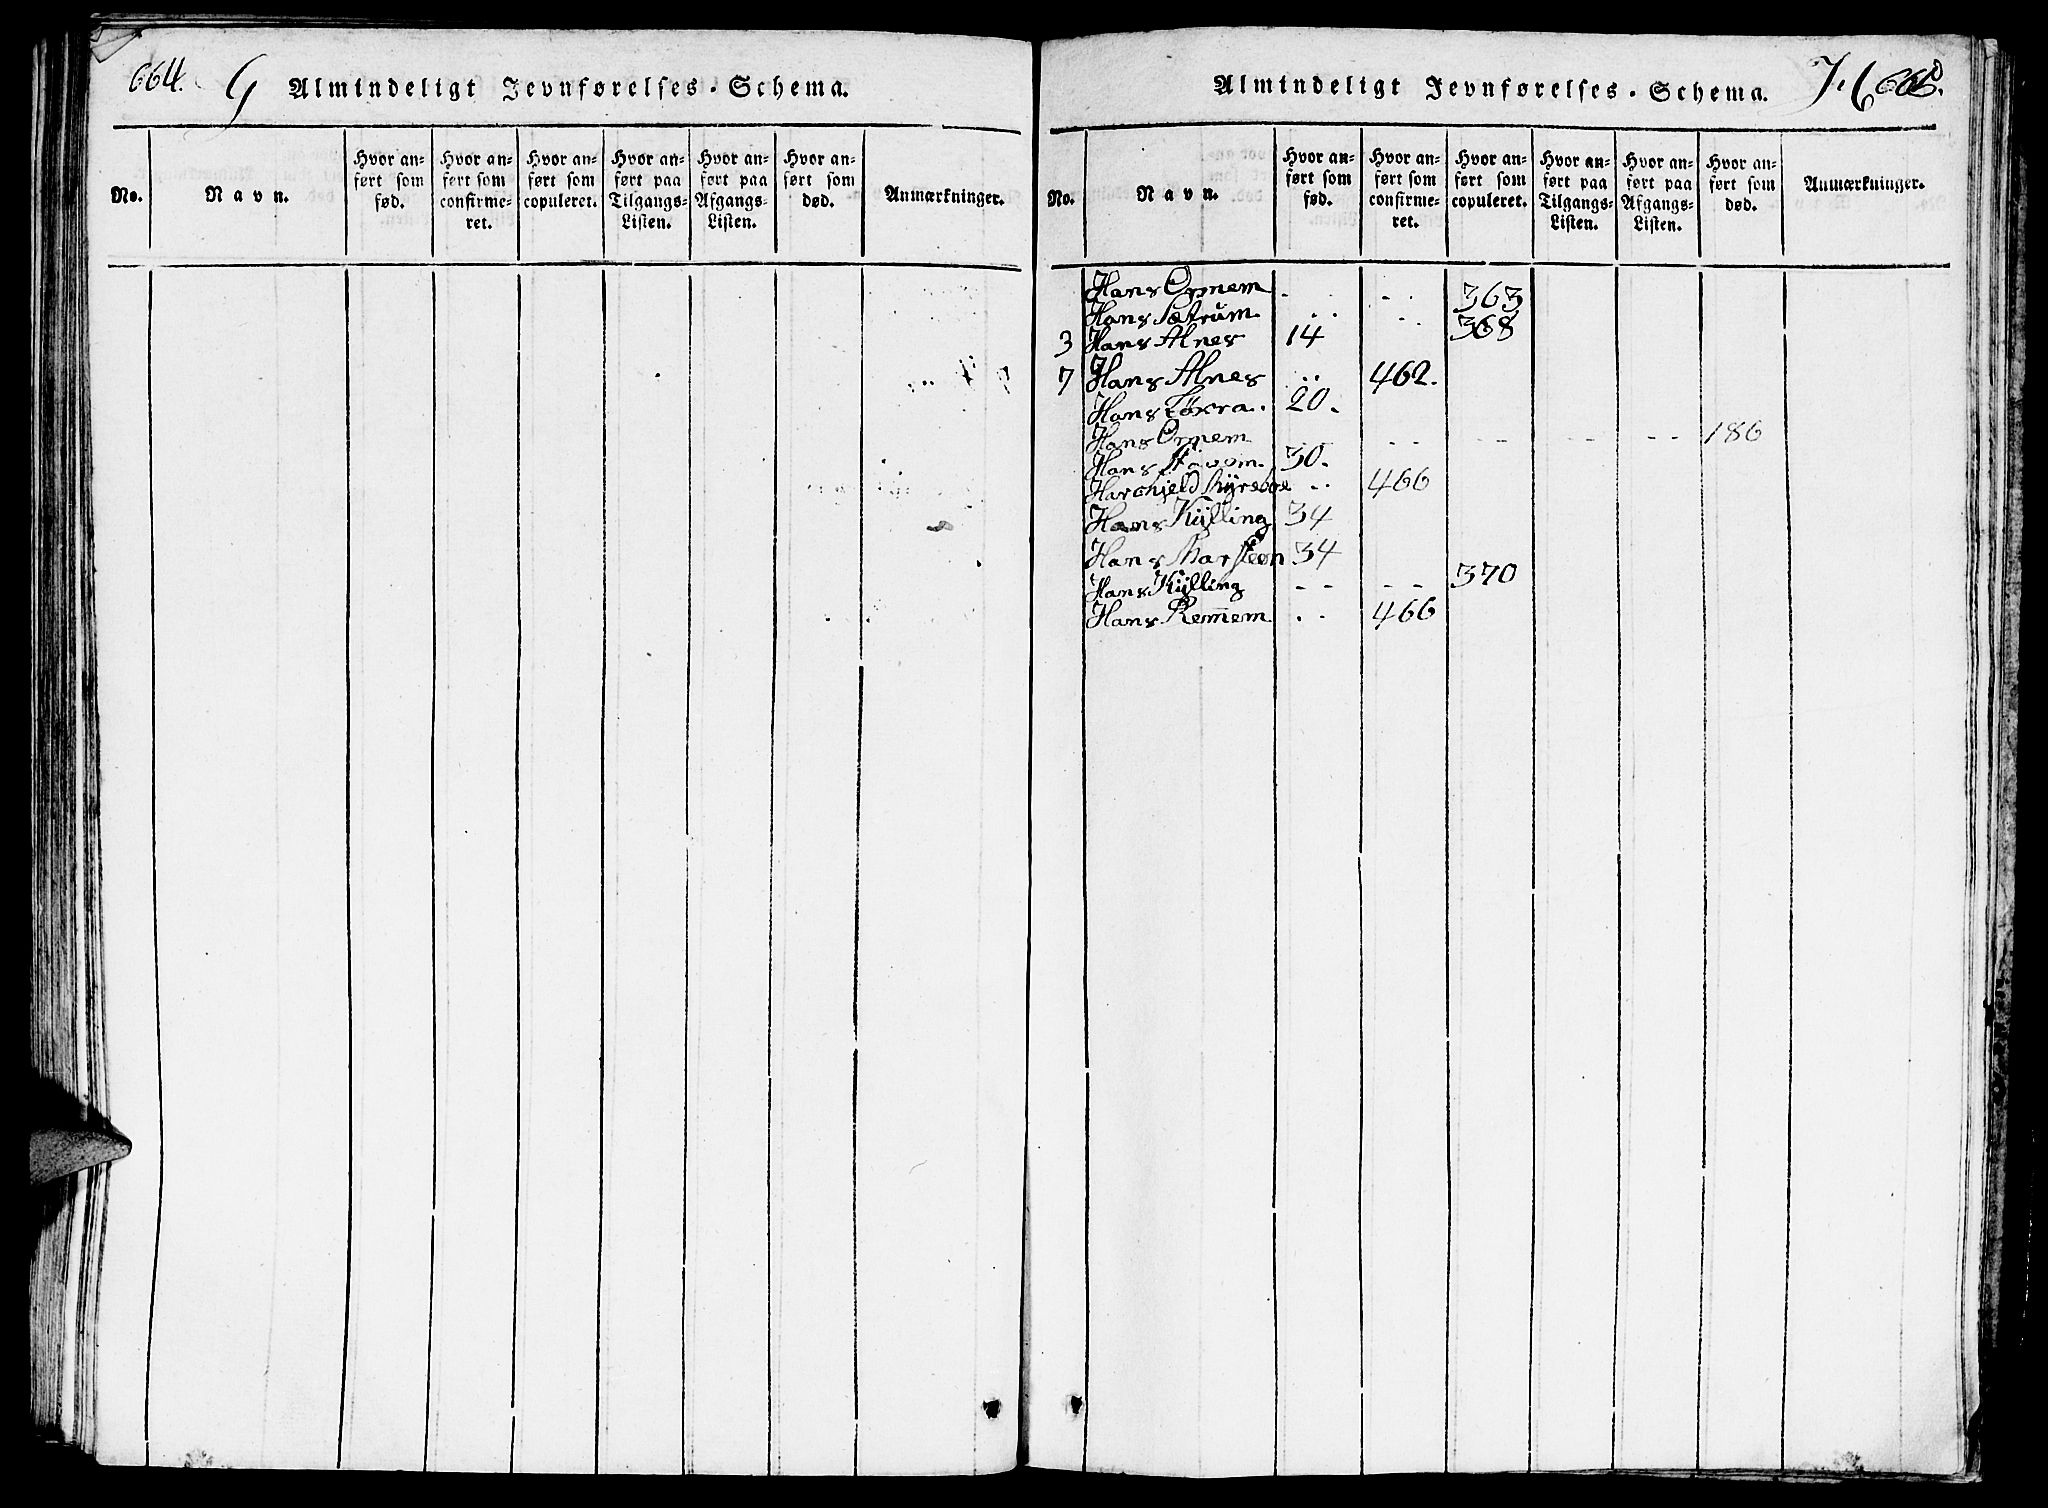 664. G Almindeligt Jevnførelses-Schema.
No.
Navn.
Hvor anført som fød.
Hvor anført som confirmeret.
Hvor anført som copuleret.
Hvor anført paa Tilgangs-Listen.
Hvor anført paa Afgangs-Listen.
Hvor anført som død.
Anmærkninger.
Almindeligt Jevnførelses-Schema. H
No.
Navn.
Hvor anført som fød.
Hvor anført som confirmeret.
Hvor anført som copuleret.
Hvor anført paa Tilgangs-Listen.
Hvor anført paa Afgangs-Listen.
Hvor anført som død.
Anmærkninger.
Hans Ormem - . - . 363
Hans Sætrum . . - . 368
3 Hans Alnes 14
7 Hans Alnes . . 462.
Hans 20.
Hans Ormem - - - - - - - - 186
Hans 30.
. . 466
Hans Kÿlling 34
Hans Marsteen 34
Hans Kÿlling - - - - 370
Hans Rem̅em . . 466